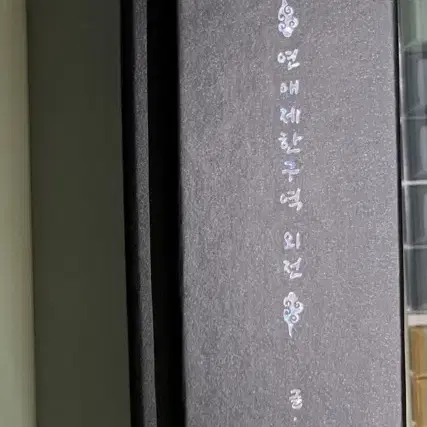 연애제한구역 외전
글 ·